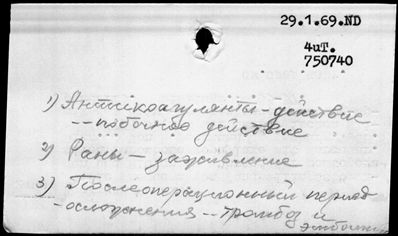 29.1.69.ND
4uT.
750740
1) Антикоагулянты - действие
-- побочное действие
2) Раны - заживление
3) Послеоперационный период
- осложнения -- тромбоз и
эмболия